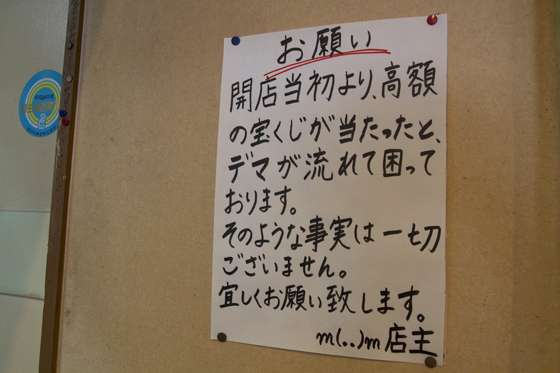 お願い
開店当初より、高額
の宝くじが当たったと、
デマが流れて困って
おります。
そのような事実は一切
ございません。
宜しくお願い致します。
m(..)m店主